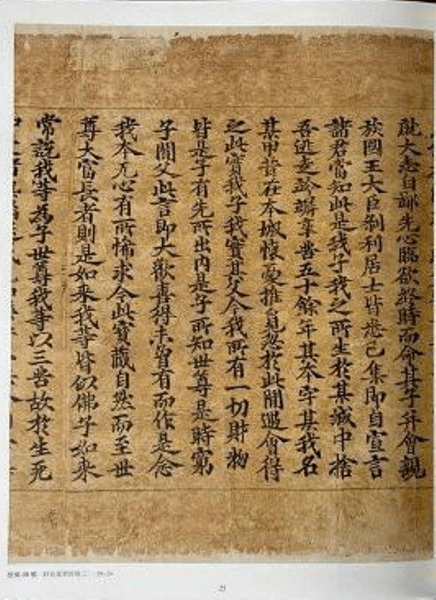 就大志自鄙先心臨欲終時而命其子并會親
族國王大臣刹利居士皆悉已集即自宣言
諸君當知此是我子我之所生於某城中捨
吾逃走跉跰辛苦五十餘年其本字某我名
某甲昔在本城懷憂推覓忽於此間遇會得
之此實我子我實其父今我所有一切財物
皆是子有先所出內是子所知世尊是時窮
子聞父此言即大歡喜得未曾有而作是念
我本无心有所悕求今此寶藏自然而至世
尊大富長者則是如来我等皆似佛子如来
常說我等為子世尊我等以三苦故於生死
25